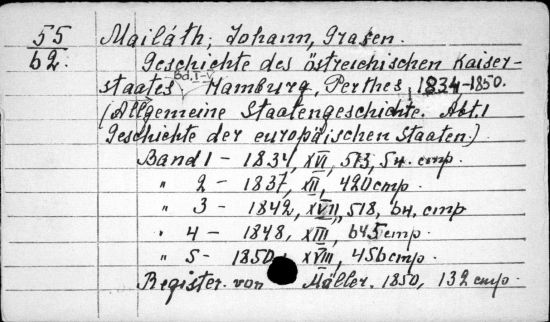 55 Mailáth, Johann, Grafen.
62. Geschichte des östreichischen Kaiser-
staates Bd. I-V Hamburg, Perthes, 1834-1850.
(Allgemeine Staatengeschichte. Abt. I
Geschichte der europäischen Staaten.)
Band 1 - 1834, XVI, 513, 54. стр.
" 2 - 1837, XII, 420 стр.
" 3 - 1842, XVII, 518, 64. стр
" 4 - 1848, XIII, 645 стр.
" 5 - 1850, XVIII, 456 стр.
Register. von Möller. 1850, 132 стр.